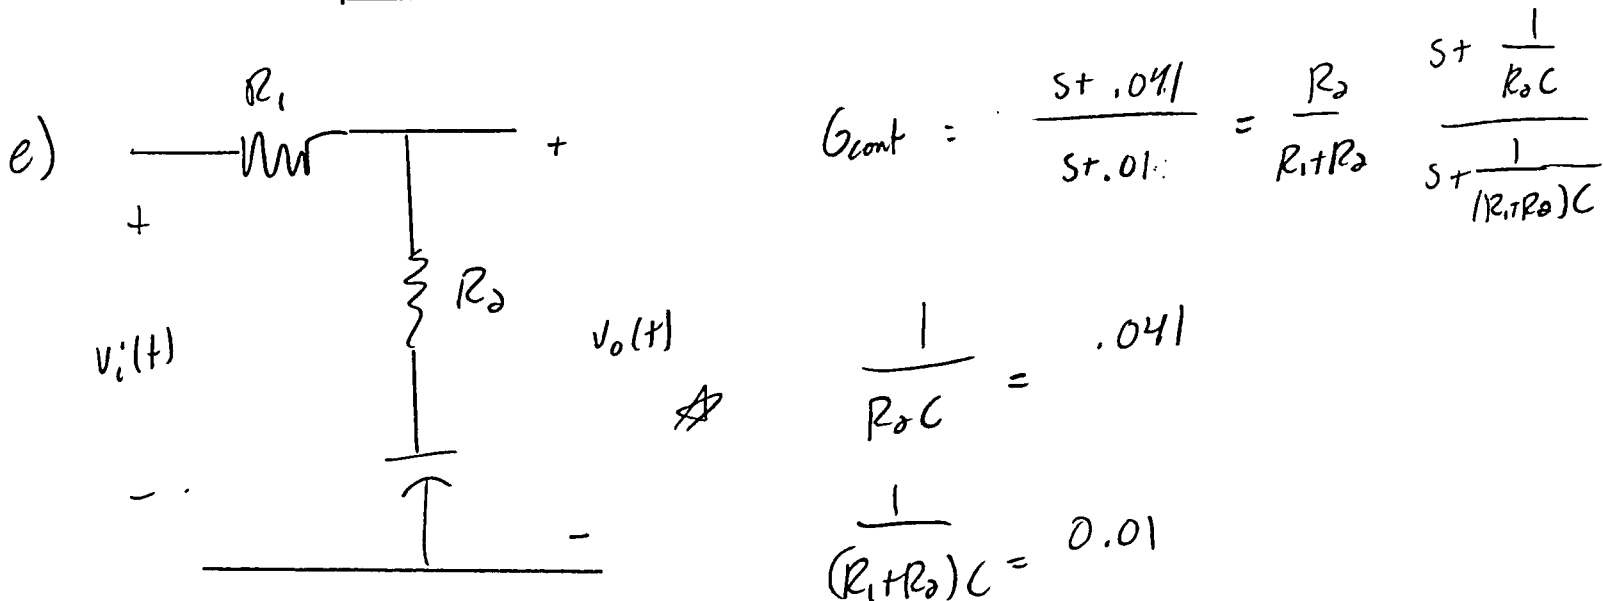 e)
R₁
+
+
vᵢ(t)
R₂
v₀(t)
-
-
Gcont = (s + .041)/(s + .01) = R₂/(R₁+R₂) (s + 1/(R₂C))/(s + 1/((R₁+R₂)C))
1/(R₂C) = .041
1/((R₁+R₂)C) = 0.01